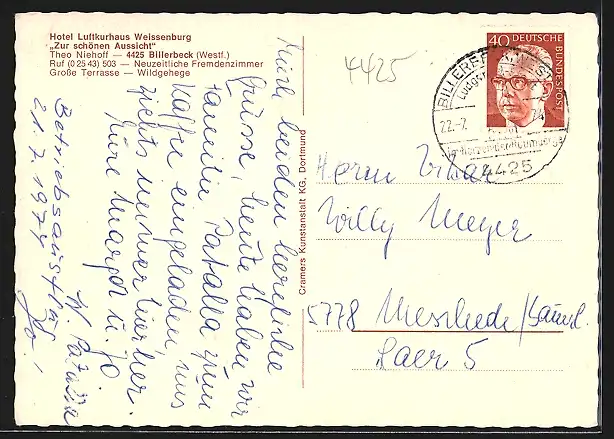 Hotel Luftkurhaus Weissenburg
„Zur schönen Aussicht"
Theo Niehoff — 4425 Billerbeck (Westf.)
Ruf (0 25 43) 503 — Neuzeitliche Fremdenzimmer
Große Terrasse — Wildgehege
4425
40 DEUTSCHE
BUNDESPOST
BILLERBECK, WESTF
22.-7. 74
4425
Cramers Kunstanstalt KG, Dortmund
Euch beiden herzliche
Grüsse, heute haben wir
Familie zum
Kaffee eingeladen uns
zieht's immer hierher.
Eure Margot u. Jo
Betriebsausflug
21.7.1974
Herrn
Willy Meyer
5778 Meschede/
Laer 5